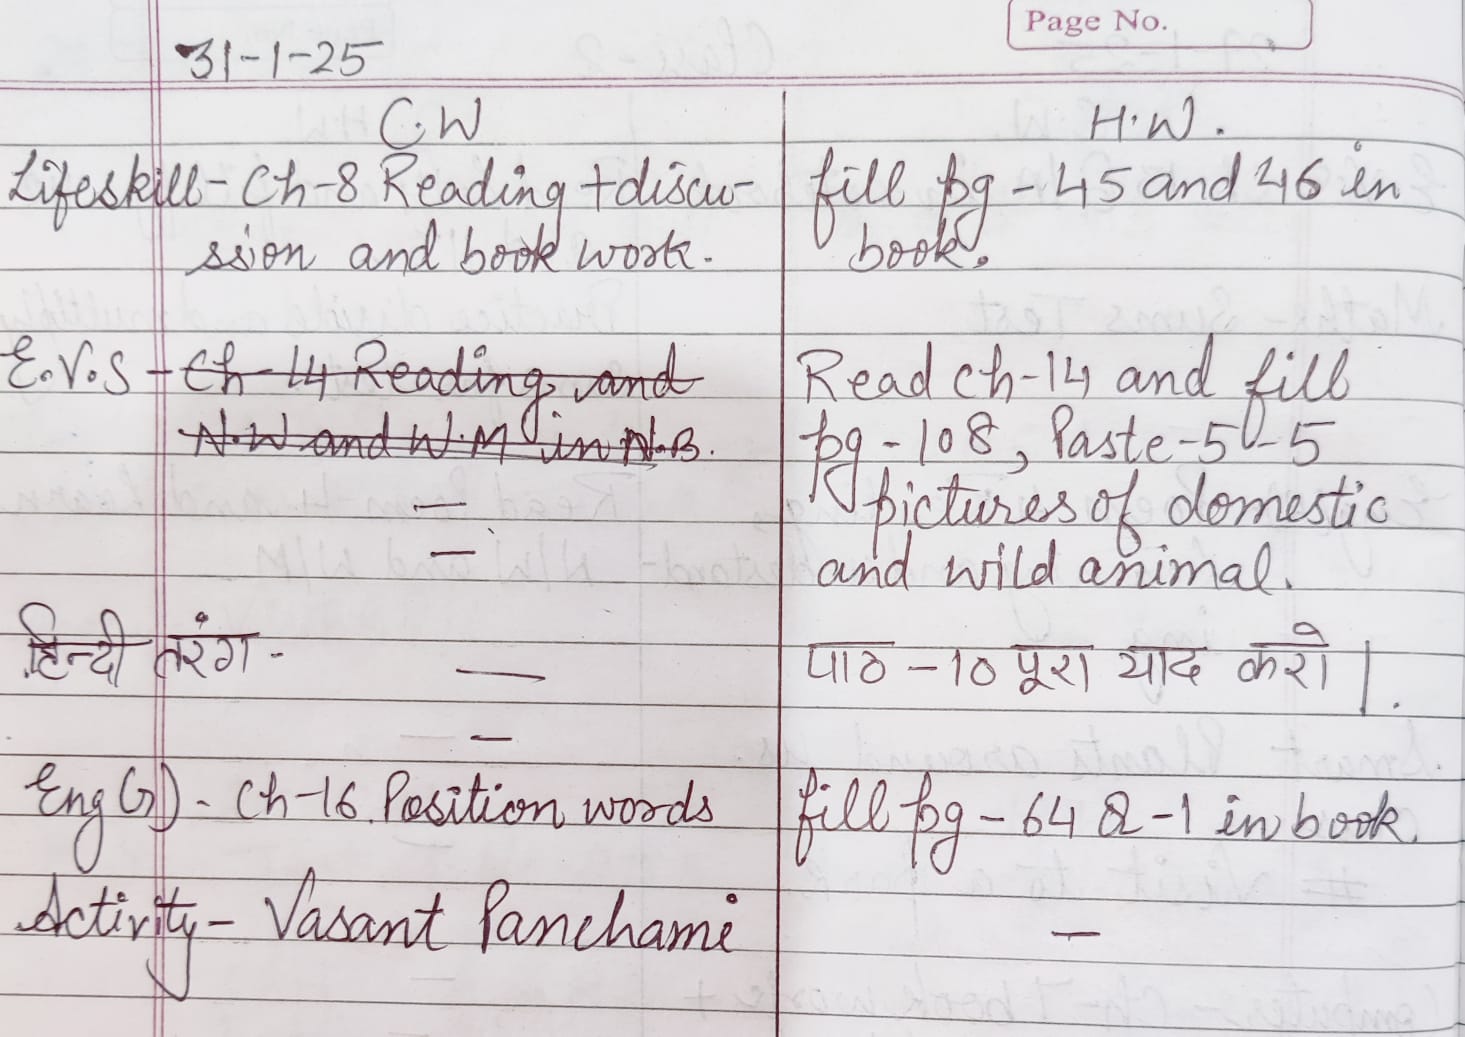 Page No.
31-1-25
C.W
H.W.
Lifeskill - Ch-8 Reading + discu-
fill pg - 45 and 46 in
ssion and book work.
book.
E.V.S - Ch-14 Reading and
Read ch-14 and fill
N.W and W.M in N.B.
pg - 108, Paste - 5-5
pictures of domestic
and wild animal.
हिन्दी तरंग -
पाठ - 10 पूरा याद करो |.
Eng(G) - Ch-16 Position words
fill pg - 64 Q-1 in book.
Activity - Vasant Panchami